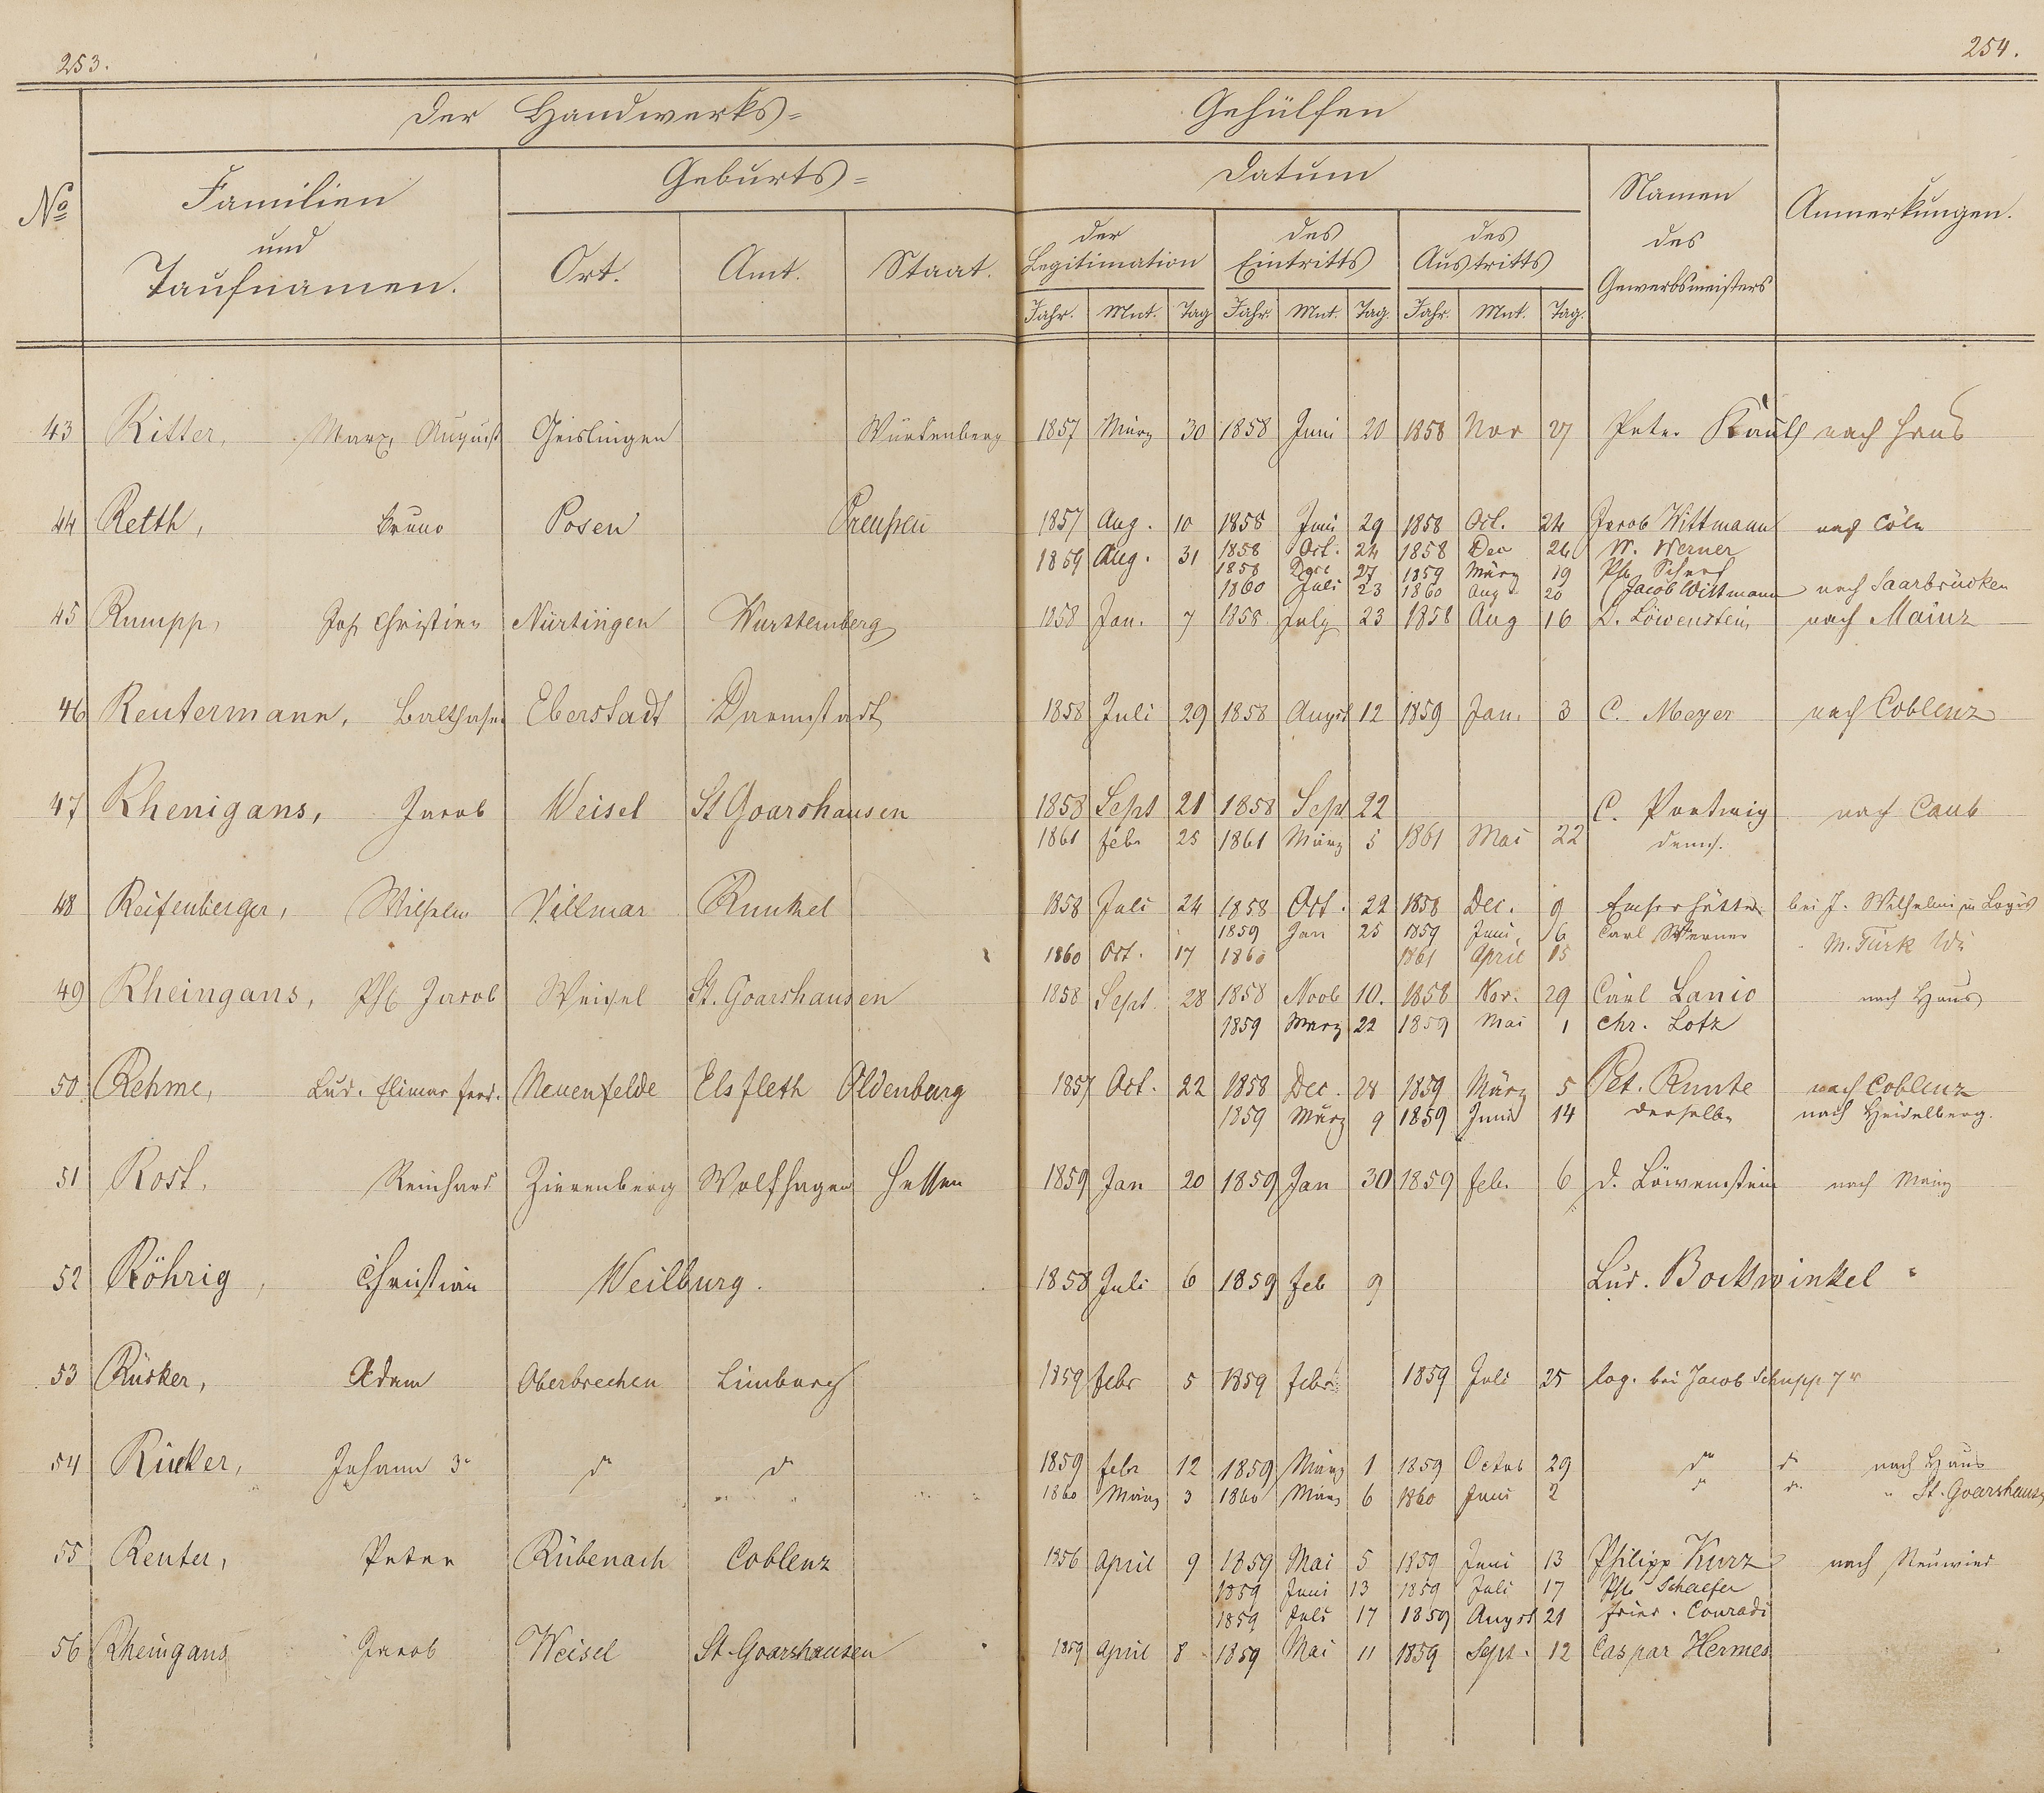 253.
254.
Der Handwerks=
Gehülfen
No
Familien
und
Taufnamen.
Geburts=
Ort.
Amt.
Staat.
Datum
der
Legitimation
des
Eintritts
des
Austritts
Jahr. Mnt. Tag Jahr. Mnt. Tag. Jahr. Mnt. Tag.
Namen
des
Gewerbsmeisters
Anmerkungen.
43 Ritter, Marx August Geislingen Würtenberg 1857 März 30 1858 Juni 20 1858 Nov 27 Peter nach Haus
44 Retth, Bruno Posen Preußen 1857 Aug. 10 1858 Juni 29 1858 Oct. 24 Jacob Wittmann nach Cöln
1859 Aug. 31 1858 Oct. 24 1858 Dec 26 W. Werner
1858 Dec 27 1859 März 19 Ph.
1860 Juli 23 1860 Aug 20 Jacob Wittmann nach Saarbrücken
45 Rumpp, Joh Christian Nürtingen Wurstemberg 1858 Jan. 7 1858 July 23 1858 Aug 16 D. Löwenstein nach Mainz
46 Reutermann, Balthaser Eberstadt Darmstadt 1858 Juli 29 1858 August 12 1859 Jan. 3 C. Meyer nach Coblenz
47 Rhenigans, Jacob Weisel St Goarshausen 1858 Sept 21 1858 Sept 22 C. nach Caub
1861 febr 25 1861 März 5 1861 Mai 22 dems.
48 Reifenberger, Wilhelm Villmar Runkel 1858 Juli 24 1858 Oct. 22 1858 Dec. 9 Emserhütte bei J. Wilhelmi in Logis
1859 Jan 25 1859 Juni 6 Carl Werner
1860 Oct. 17 1860 1861 April 15 M. Türk
49 Rheingans, Ph Jacob Weisel St. Goarshausen 1858 Sept 28 1858 Novb 10. 1858 Nov. 29 Carl Lanio nach Haus
1859 Merz 22 1859 Mai 1 Chr. Lotz
50 Rehme, Lud. Elimar Ferd. Neuenfelde Elsfleth Oldenburg 1857 Oct. 22 1858 Dec. 28 1859 März 5 Pet. Runte nach Coblenz
1859 März 9 1859 Juni 14 derselbe nach Heidelberg.
51 Rost, Reinhard Zierenberg Wolfhagen Hessen 1859 Jan 20 1859 Jan 30 1859 feb. 6 D. Löwenstein nach Mainz
52 Röhrig, Christian Weilburg. 1858 Juli 6 1859 feb 9 Lud. Bockwinkel
53 Rücker, Adam Oberbrechen Limburg 1859 febr 5 1859 febr 1859 Juli 25 log. bei Jacob Schupp 7r
54 Rücker, Johann 3r do do 1859 febr 12 1859 März 1 1859 Octob 29 do do nach Haus
1860 März 3 1860 März 6 1860 Juni 2 do do " St. Goarshausen
55 Reuter, Peter Rübenach Coblenz 1856 April 9 1859 Mai 5 1859 Juni 13 Philipp Kurz nach Neuwied
1859 Juni 13 1859 Juli 17 Ph. Schaefer
1859 Juli 17 1859 August 21 Fried. Conradi
56 Rheingans Jacob Weisel St. Goarshausen 1859 April 8 1859 Mai 11 1859 Sept. 12 Caspar Hermes